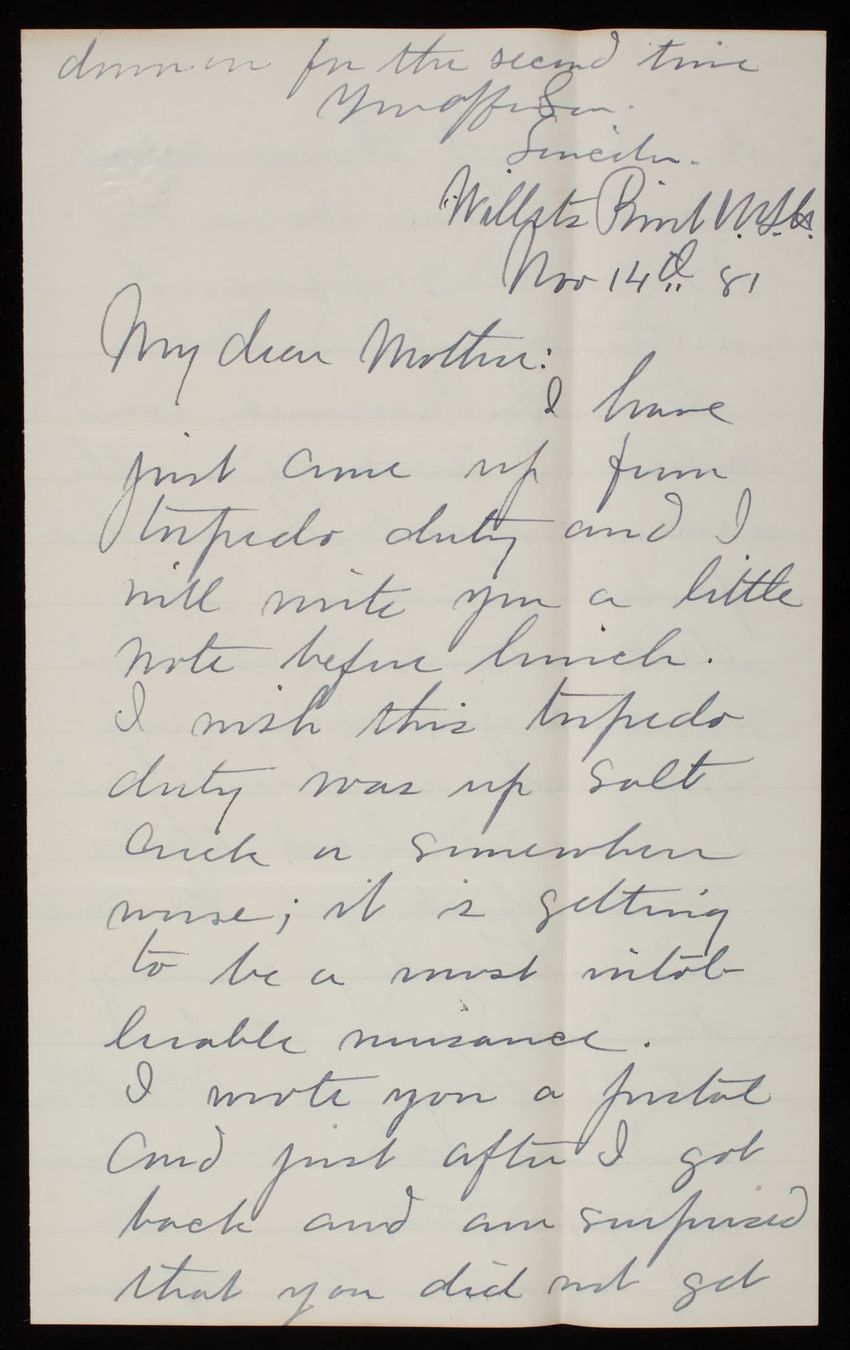 down on for the second time
Your aff. Son.
Lincoln.
Willets Point N.Y.H.
Nov 14th 81
My dear Mother:
I have
just come up from
torpedo duty and I
will write you a little
note before lunch.
I wish this torpedo
duty was up Salt
Creek or somewhere
worse; it is getting
to be a most intol-
lerable nuisance.
I wrote you a postal
and just after I got
back and am surprised
that you did not get